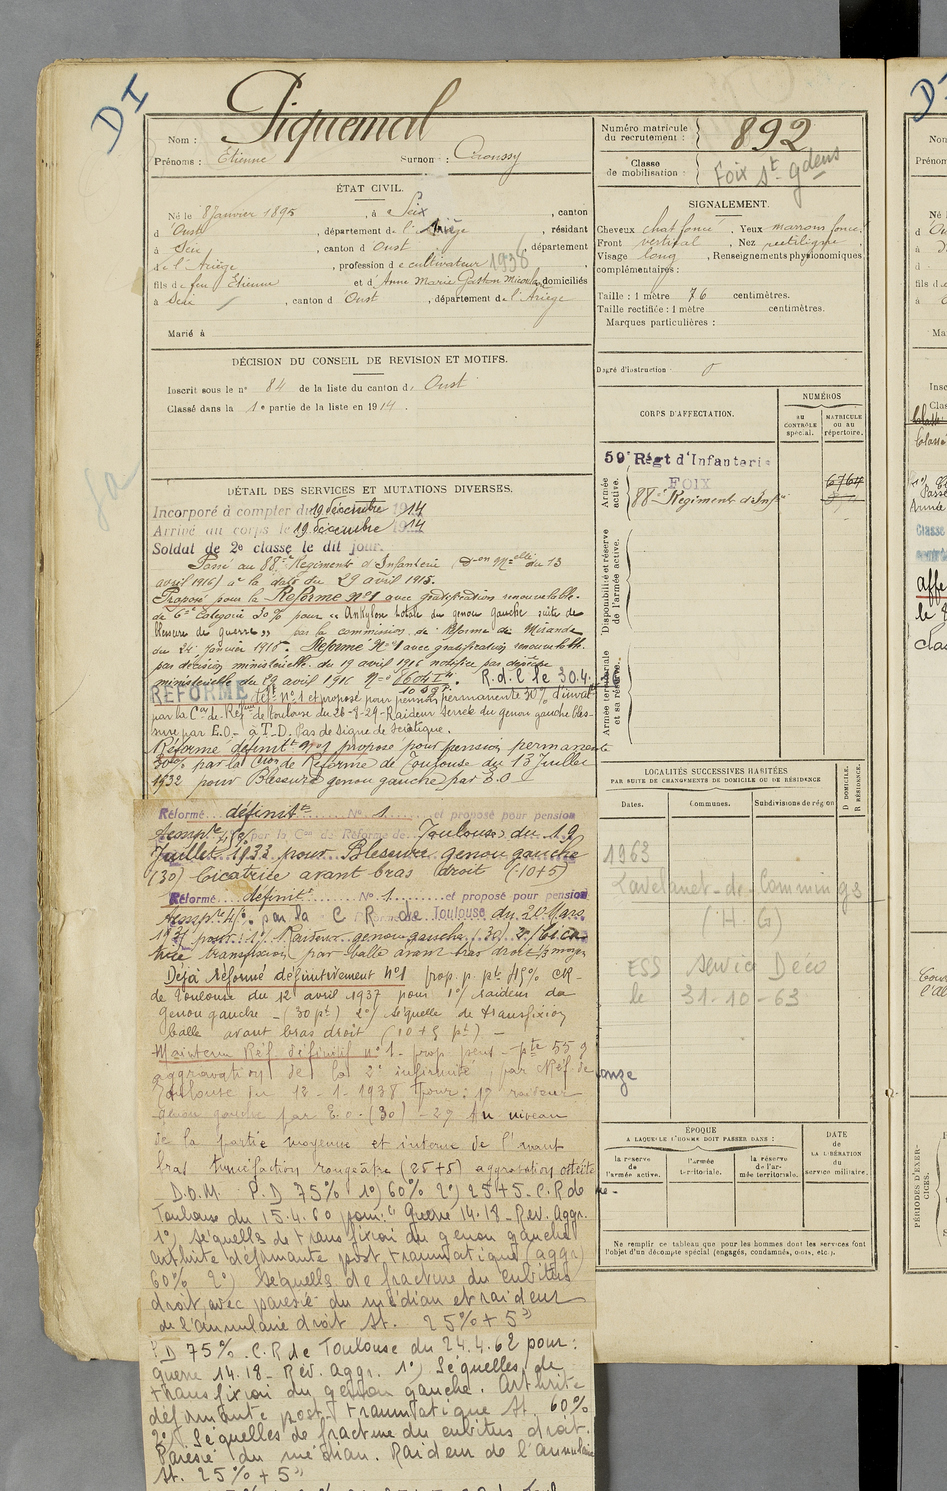 DI
Nom : Piquemal
Prénoms : Etienne Surnom :
ÉTAT CIVIL.
Né le 8 Janvier 1895, à Seix, canton
d'Oust, département de l'Ariège, résidant
à Seix, canton d'Oust, département
de l'Ariège, profession de cultivateur 1938
fils de feu Etienne et d'Anne Marie Gaston domiciliés
à Seix, canton d'Oust, département de l'Ariège
Marié à
DÉCISION DU CONSEIL DE REVISION ET MOTIFS.
Inscrit sous le n° 84 de la liste du canton d'Oust
Classé dans la 1e partie de la liste en 1914.
DÉTAIL DES SERVICES ET MUTATIONS DIVERSES.
Incorporé à compter du 19 décembre 1914
Arrivé au corps le 19 décembre 1914
Soldat de 2e classe le dit jour.
Passé au 88e Régiment d'Infanterie du 13
avril 1916) à la date du 29 avril 1915.
Proposé pour la Réforme N°1 avec gratification renouvelable
de 6e Catégorie 30% pour "Ankylose totale du genou gauche suite de
blessure de guerre" par la commission de Réforme de Mirande
du 24 Janvier 1916. Réformé N°1 avec gratification renouvelable
par décision ministérielle du 19 avril 1916 notifiée par dépêche
ministérielle du 29 avril 1916 R.d.C le 30.4.16
RÉFORMÉ déf. n°1 et proposé pour pension permanente 30% d'inval.
par la Con de Réf. de Toulouse du 26-7-29-Raideur serrée du genou gauche bles-
sure par E.O. - à T-D. Pas de signe de Sciatique.
Réforme définitte n°1 proposé pour pension permanente
30% par la Con de Réforme de Toulouse du 13 Juillet
1932 pour Blessure genou gauche par E.O
Réformé définitt N° 1 et proposé pour pension
par la Con de Réforme de Toulouse du 19
Juillet 1933 pour Blessure genou gauche
(30) Cicatrice avant bras droit (10+5)
Réformé définitt N° 1 et proposé pour pension
par la C R de Toulouse du 20 Mars
pour : 1°) Raideur genou gauche (30) 2°) Cica
trice transfixion par balle avant bras droit 1/3 moyen
Déjà réformé définitivement n°1 prop. p. pte 45% CR
de Toulouse du 12 avril 1937 pour 1°) raideur du
genou gauche - (30 pt) 2°) séquelle de transfixion
balle avant bras droit (10+5 pt) -
Maintenu Réf. définitif n°1 - prop. pens - pte 55 %
aggravation de la 2e infirmité par C Réf de
Toulouse du 12-1-1938 pour : 1° raideur
genou gauche par E.O. (30) - 2° Au niveau
de la partie moyenne et interne de l'avant
bras tuméfaction rougeâtre (25+5) aggravation ostéite
D.O.M. P.D 75% 1°) 60% 2°) 25+5. C.R de
Toulouse du 15.4.60 pour : "Guerre 14.18 - Rev. Aggr.
1°) séquelles de transfixion du genou gauche
arthrite déformante post traumatique (aggr)
60% 2°) Séquelles de fracture du cubitus
droit, avec parésie du médian et raideur
de l'annulaire droit St. 25% + 5"
PD 75% C.R de Toulouse du 24.4.62 pour :
guerre 14.18 - Rév. Aggr. 1°) Séquelles de
transfixion du genou gauche. Arthrite
déformante post-traumatique St. 60%
2°) Séquelles de fracture du cubitus droit.
Parésie du médian. Raideur de l'annulaire
St. 25% + 5"
Numéro matricule du recrutement : 892
Classe de mobilisation : Foix St gdens
SIGNALEMENT.
Cheveux chat foncé, Yeux marrons foncé
Front vertical, Nez rectiligne
Visage long, Renseignements physionomiques
complémentaires :
Taille : 1 mètre 76 centimètres.
Taille rectifiée : 1 mètre centimètres.
Marques particulières :
Degré d'instruction : 0
CORPS D'AFFECTATION.
NUMÉROS
AU CONTRÔLE spécial.
MATRICULE OU AU répertoire.
Armée active.
59e Régt d'Infanterie
FOIX
6764
88e Régiment d'Infie
Disponibilité et réserve de l'armée active.
Armée territoriale et sa réserve.
LOCALITÉS SUCCESSIVES HABITÉES
PAR SUITE DE CHANGEMENTS DE DOMICILE OU DE RÉSIDENCE
Dates. Communes. Subdivisions de région
D DOMICILE. R RÉSIDENCE.
1963
Lavelanet-de-Comminges
(H. G)
ESS service Déco
le 31-10-63
ÉPOQUE
A LAQUELLE L'HOMME DOIT PASSER DANS :
la réserve de l'armée active.
l'armée territoriale.
la réserve de l'armée territoriale.
DATE de LA LIBÉRATION du service militaire.
Ne remplir ce tableau que pour les hommes dont les services font
l'objet d'un décompte spécial (engagés, condamnés, omis, etc.).
PÉRIODES D'EXERCICES.